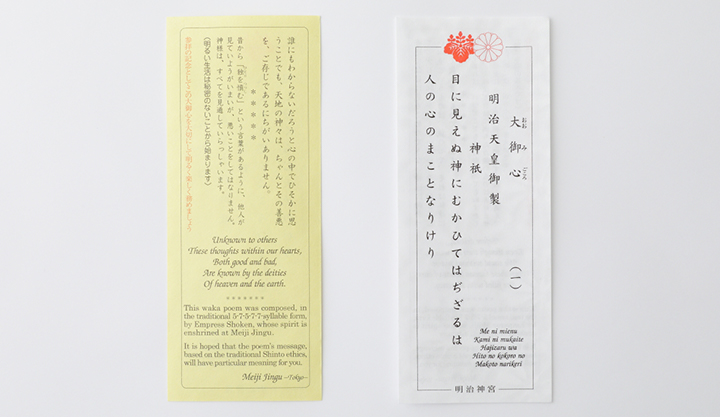 誰にもわからないだろうと心の中でひそかに思
うことでも、天地の神々は、ちゃんとその善悪
を、ご存じであるにちがいありません。
＊＊＊＊＊
昔から「独を慎む」という言葉があるように、他人が
見ていようがいまいが、悪いことをしてはなりません。
神様は、すべてを見通していらっしゃいます。
（明るい生活は秘密のないことから始まります）
参拝の記念としてこの大御心を大切にし明るく楽しく務めましょう
Unknown to others
These thoughts within our hearts,
Both good and bad,
Are known by the deities
Of heaven and the earth.
*******
This waka poem was composed, in
the traditional 5-7-5-7-7-syllable form,
by Empress Shoken, whose spirit is
enshrined at Meiji Jingu.
It is hoped that the poem's message,
based on the traditional Shinto ethics,
will have particular meaning for you.
Meiji Jingu –Tokyo–
大御心 （一）
おお み ごころ
明治天皇御製
神祇
目に見えぬ神にむかひてはぢざるは
人の心のまことなりけり
Me ni mienu
Kami ni mukaite
Hajizaru wa
Hito no kokoro no
Makoto narikeri
明治神宮